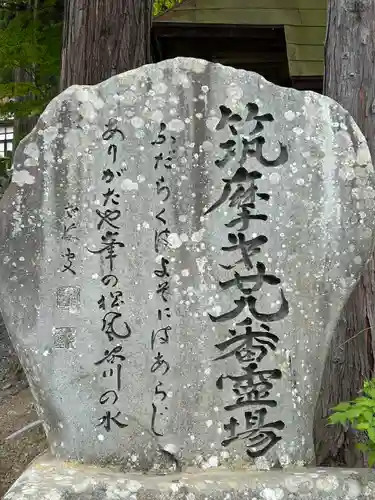 筑摩第廿番霊場
ふだらくはよそにはあらじ
ありがたや峯の松風谷川の水